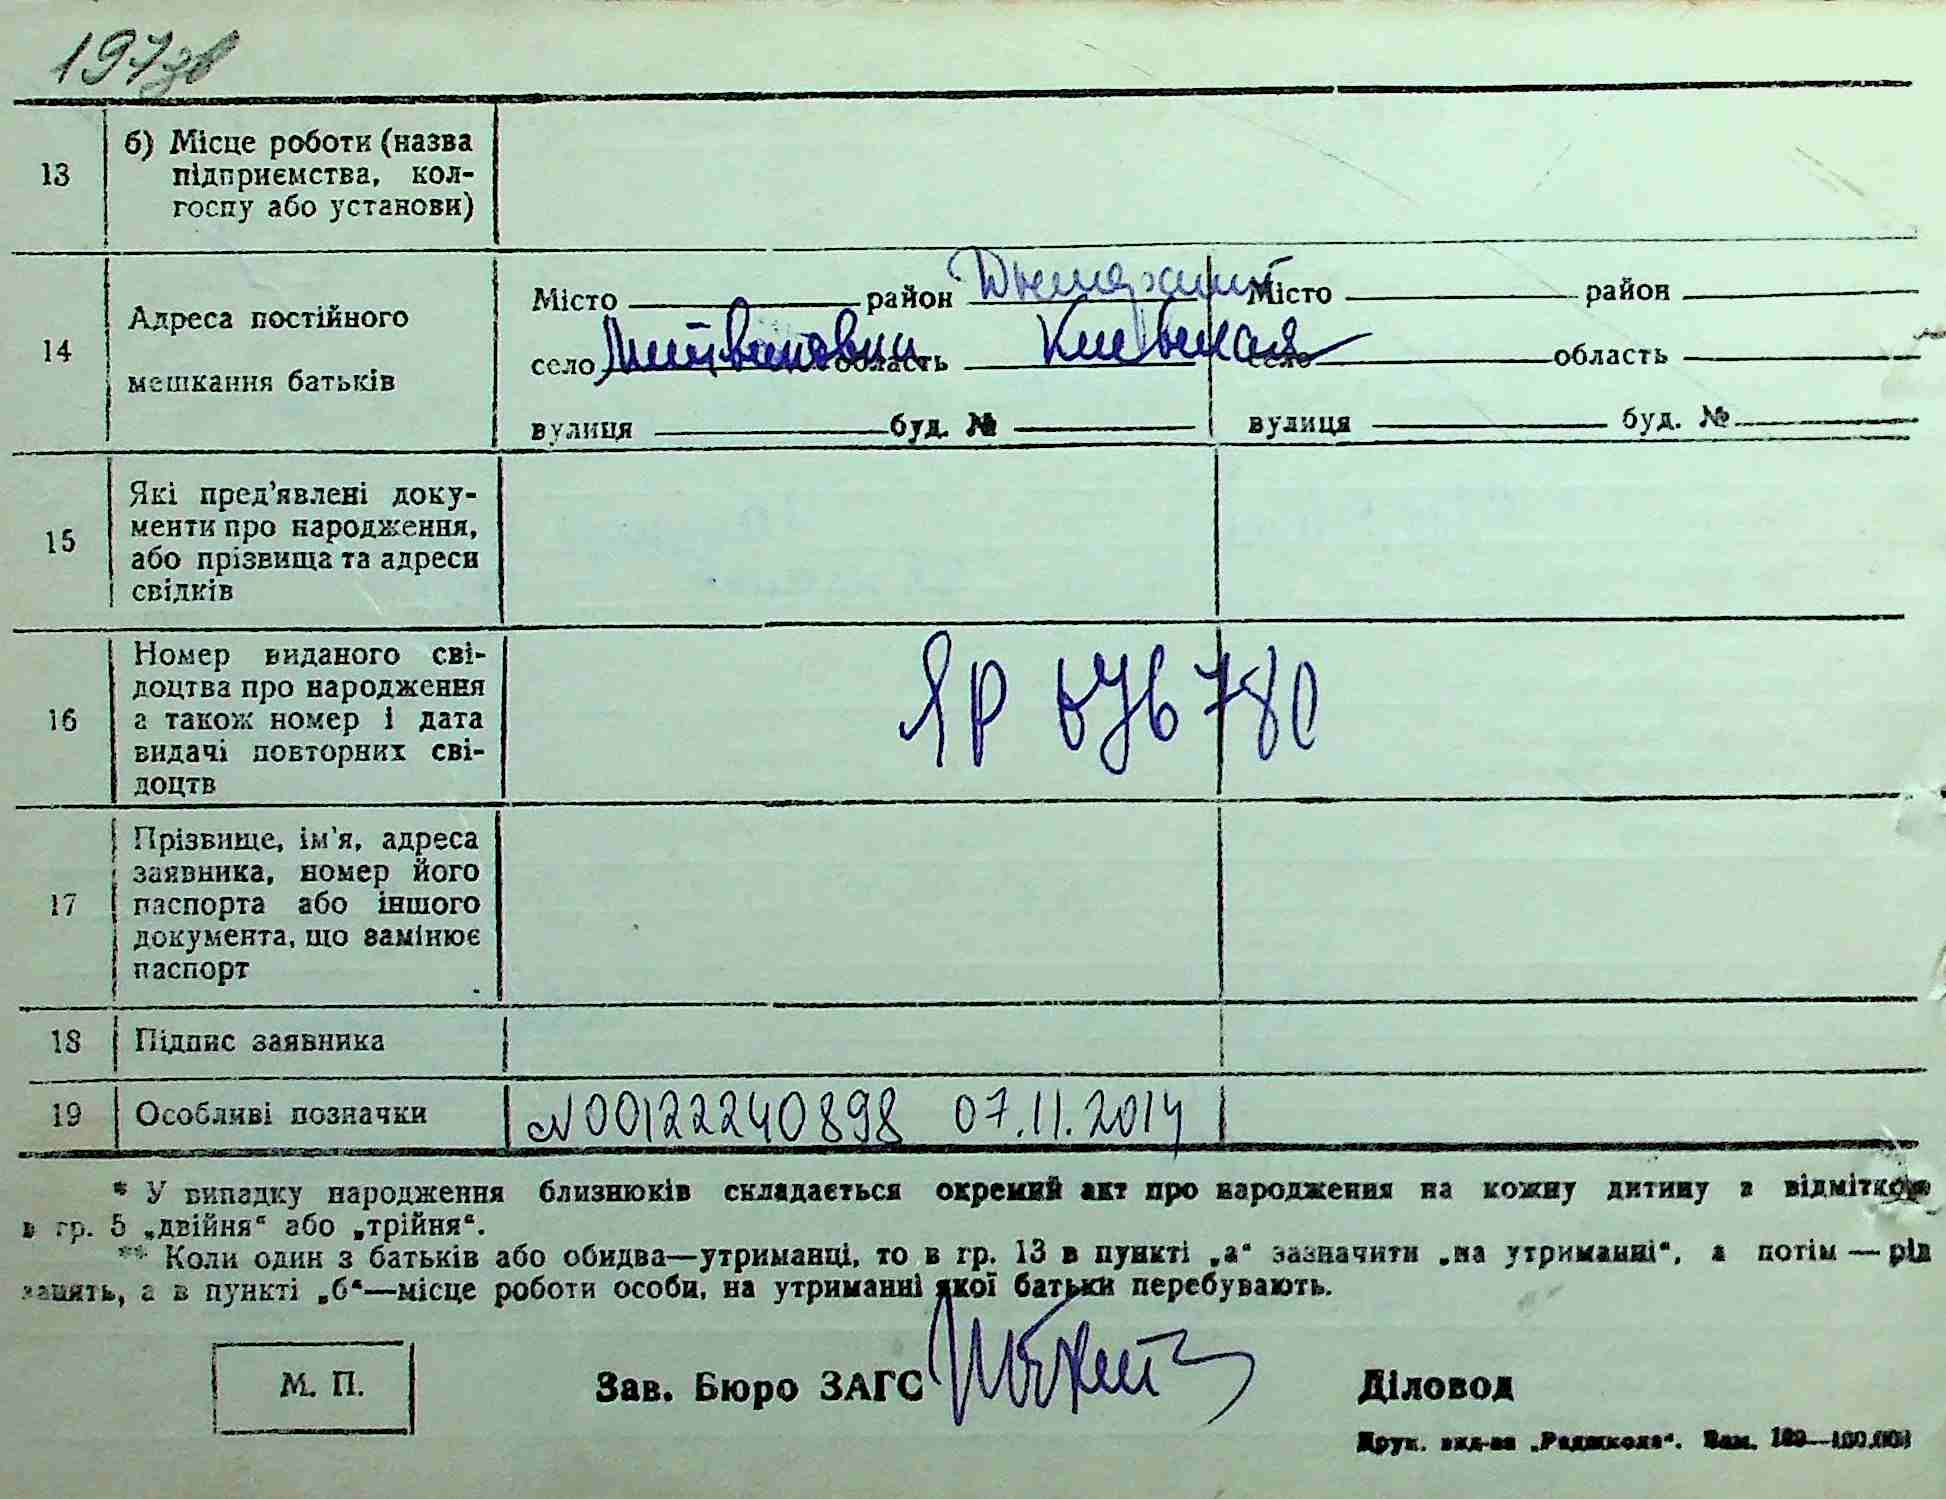 197зв
13
б) Місце роботи (назва
підприємства, кол-
госпу або установи)
14
Адреса постійного
мешкання батьків
Місто район Дымерський Місто район
село Литвиновки область Киевская село область
вулиця буд. № вулиця буд. №
15
Які пред'явлені доку-
менти про народження,
або прізвища та адреси
свідків
16
Номер виданого сві-
доцтва про народження
а також номер і дата
видачі повторних сві-
доцтв
ЯР 676780
17
Прізвище, ім'я, адреса
заявника, номер його
паспорта або іншого
документа, що замінює
паспорт
18
Підпис заявника
19
Особливі позначки
N00122240898 07.11.2014
* У випадку народження близнюків складається окремий акт про народження на кожну дитину з відміткою
в гр. 5 „двійня“ або „трійня“.
** Коли один з батьків або обидва—утриманці, то в гр. 13 в пункті „а“ зазначити „на утриманні“, а потім — рід
занять, а в пункті „б“—місце роботи особи, на утриманні якої батьки перебувають.
М. П.
Зав. Бюро ЗАГС
Діловод
Друк. вид-ва „Радшкола“. Зам. 189—100.000